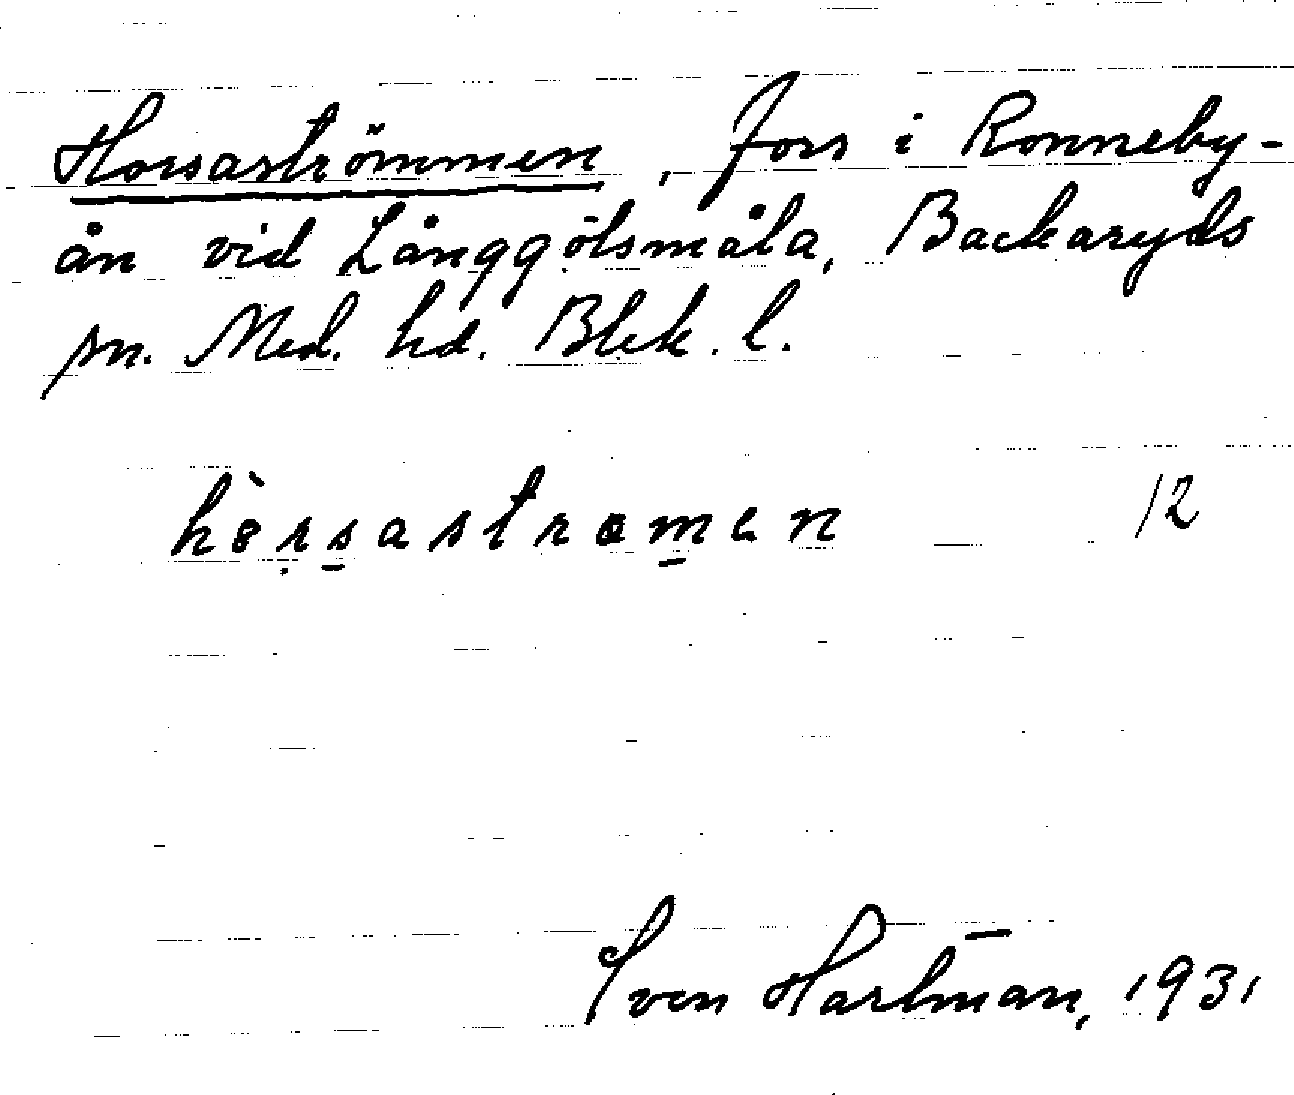 Horsaströmmen, fors i Ronneby-
ån vid Långgölsmåla, Backaryds
sn. Med. hd. Blek. l.
hòrsastrømen 12
Sven Hartman, 1931